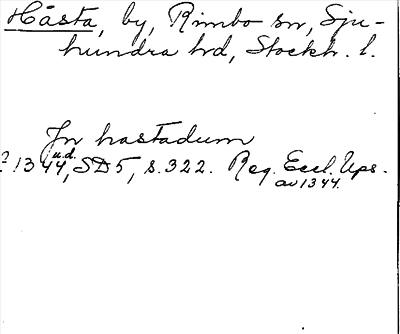 Håsta, by, Rimbo sn, Sju-
hundra hd, Stockh. l.
Jn hastadum
? 1344 u.d., SD 5, s. 322. Reg. Eccl. Ups.
av 1344.